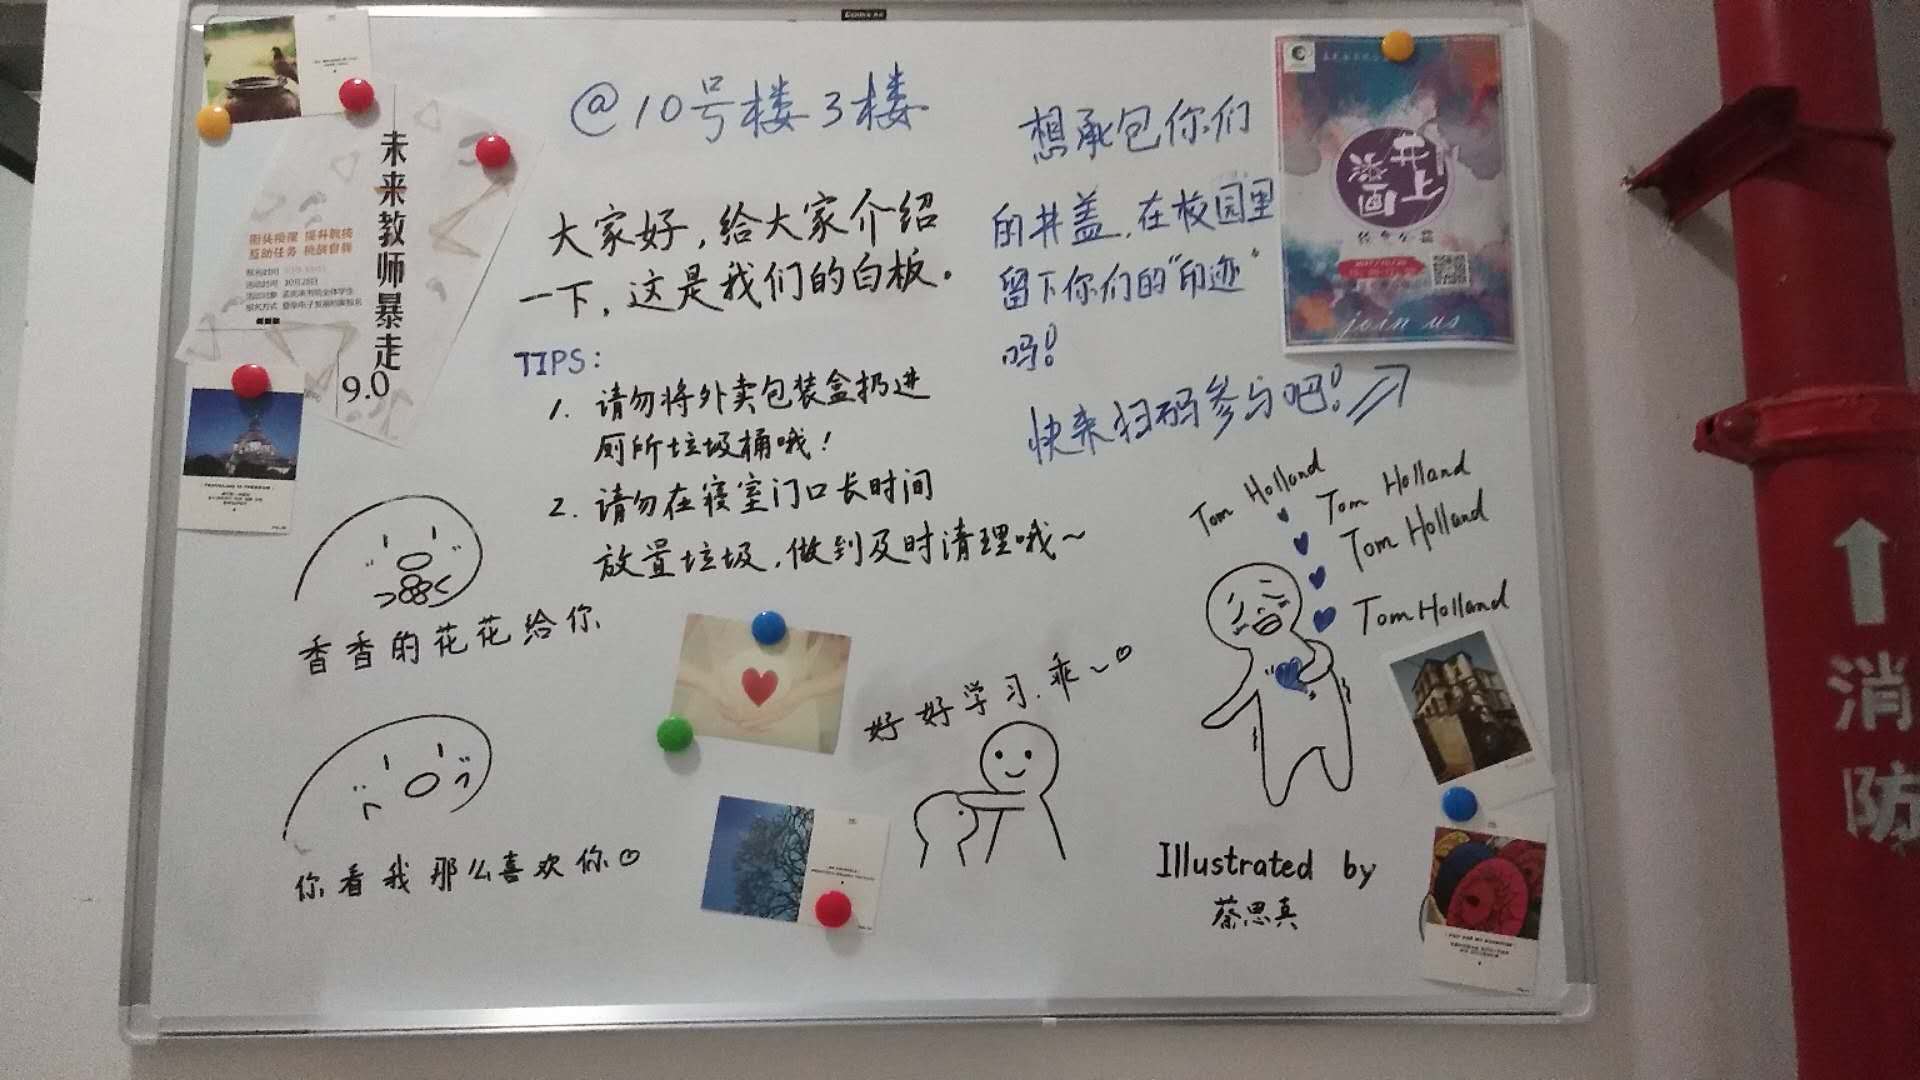 @10号楼3楼
大家好，给大家介绍
一下，这是我们的白板。
TIPS:
1. 请勿将外卖包装盒扔进
厕所垃圾桶哦！
2. 请勿在寝室门口长时间
放置垃圾，做到及时清理哦～
想承包你们
的井盖，在校园里
留下你们的“印迹”
吗！
快来扫码参与吧！
未来教师暴走
9.0
街头授课 提升教技
互助任务 挑战自我
活动时间 10月28日
添画井上
join us
Tom Holland
Tom Holland
Tom Holland
Tom Holland
香香的花花给你
你看我那么喜欢你
好好学习，乖～
Illustrated by
蔡思真
消防